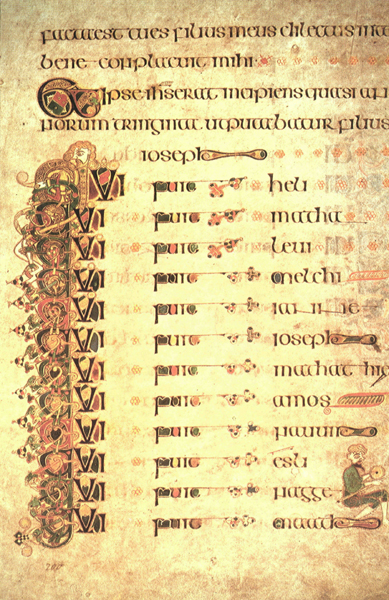 facta est tu es filius meus dilectus in te
bene conplacuit mihi
Et ipse ihs erat incipiens quasi an
norum triginta ut putabatur filius
ioseph
QVI fuit heli
QVI fuit matha
QVI fuit leui
QVI fuit melchi
QVI fuit
QVI fuit ioseph
QVI fuit
QVI fuit amos
QVI fuit nauum
QVI fuit esli
QVI fuit nagge
QVI fuit maath